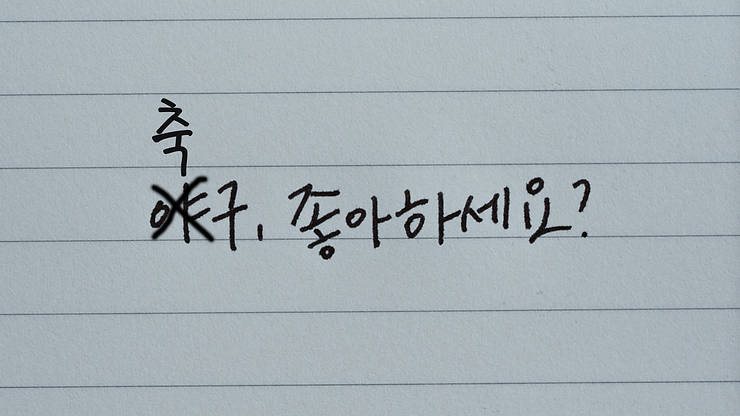 축구, 좋아하세요?